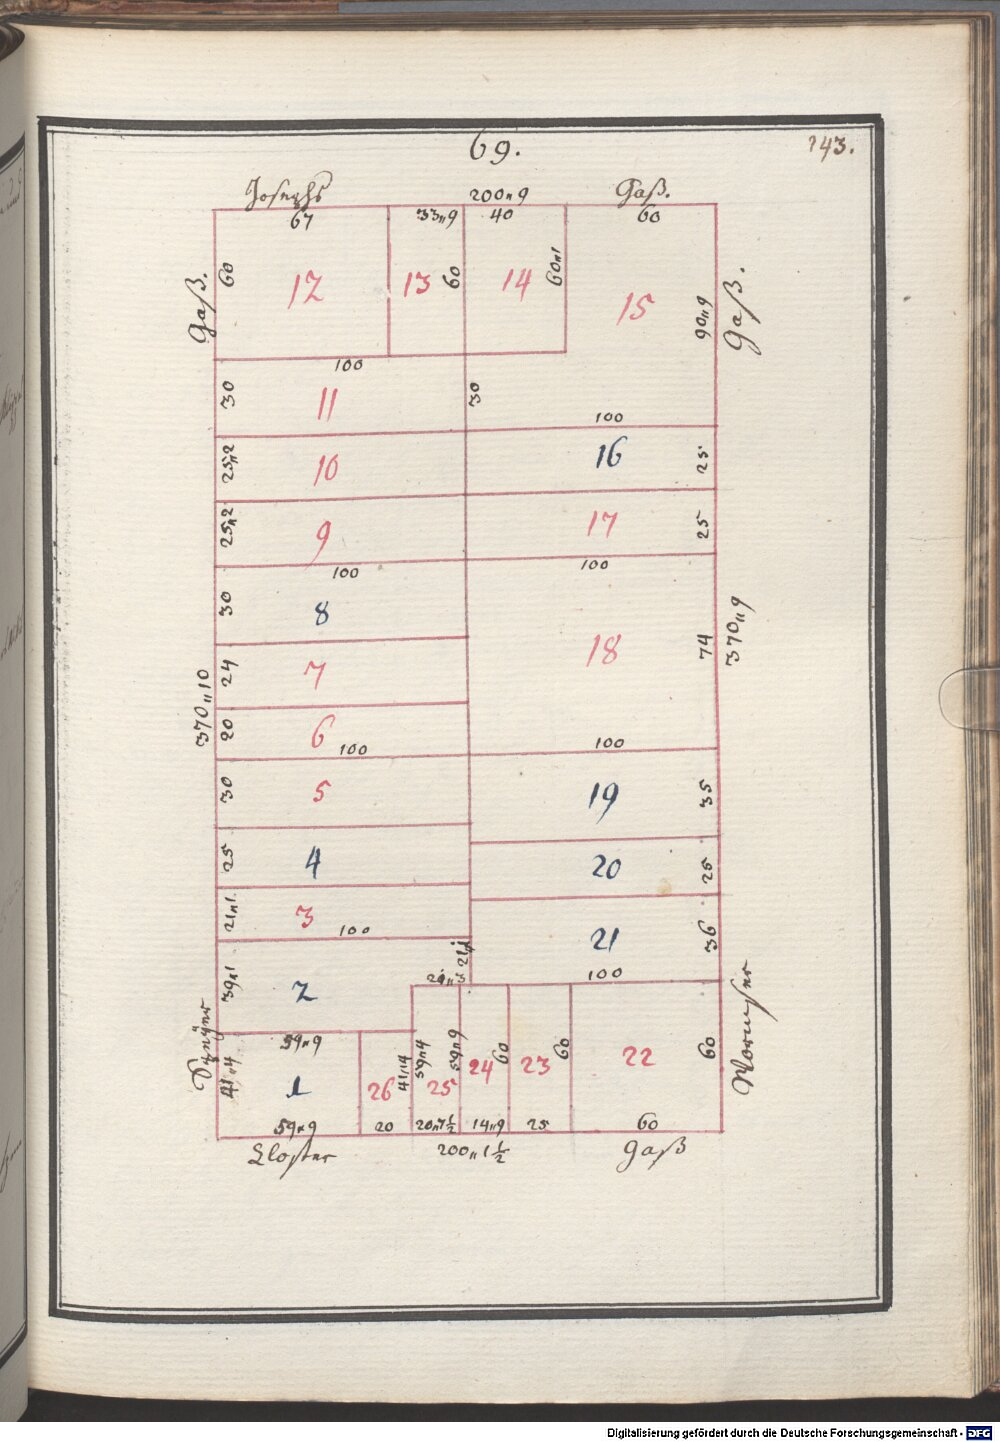 69.
143.
Josephs
200„9
Gaß.
67
33„9
40
60
60
12
13
60
14
60„1
15
90„9
Gaß.
Gaß.
100
30
11
30
100
25„2
10
16
25
25„2
9
17
25
100
100
30
8
18
74
370„9
24
7
370„10
20
6
100
100
30
5
19
35
25
4
20
25
21„1
3
100
21
36
100
39„1
2
59„9
41„4
1
26
41„4
59„4
25
59„9
24
60
23
60
22
60
Wormser
59„9
20
20„7½
14„9
25
60
Closter
200„1½
Gaß